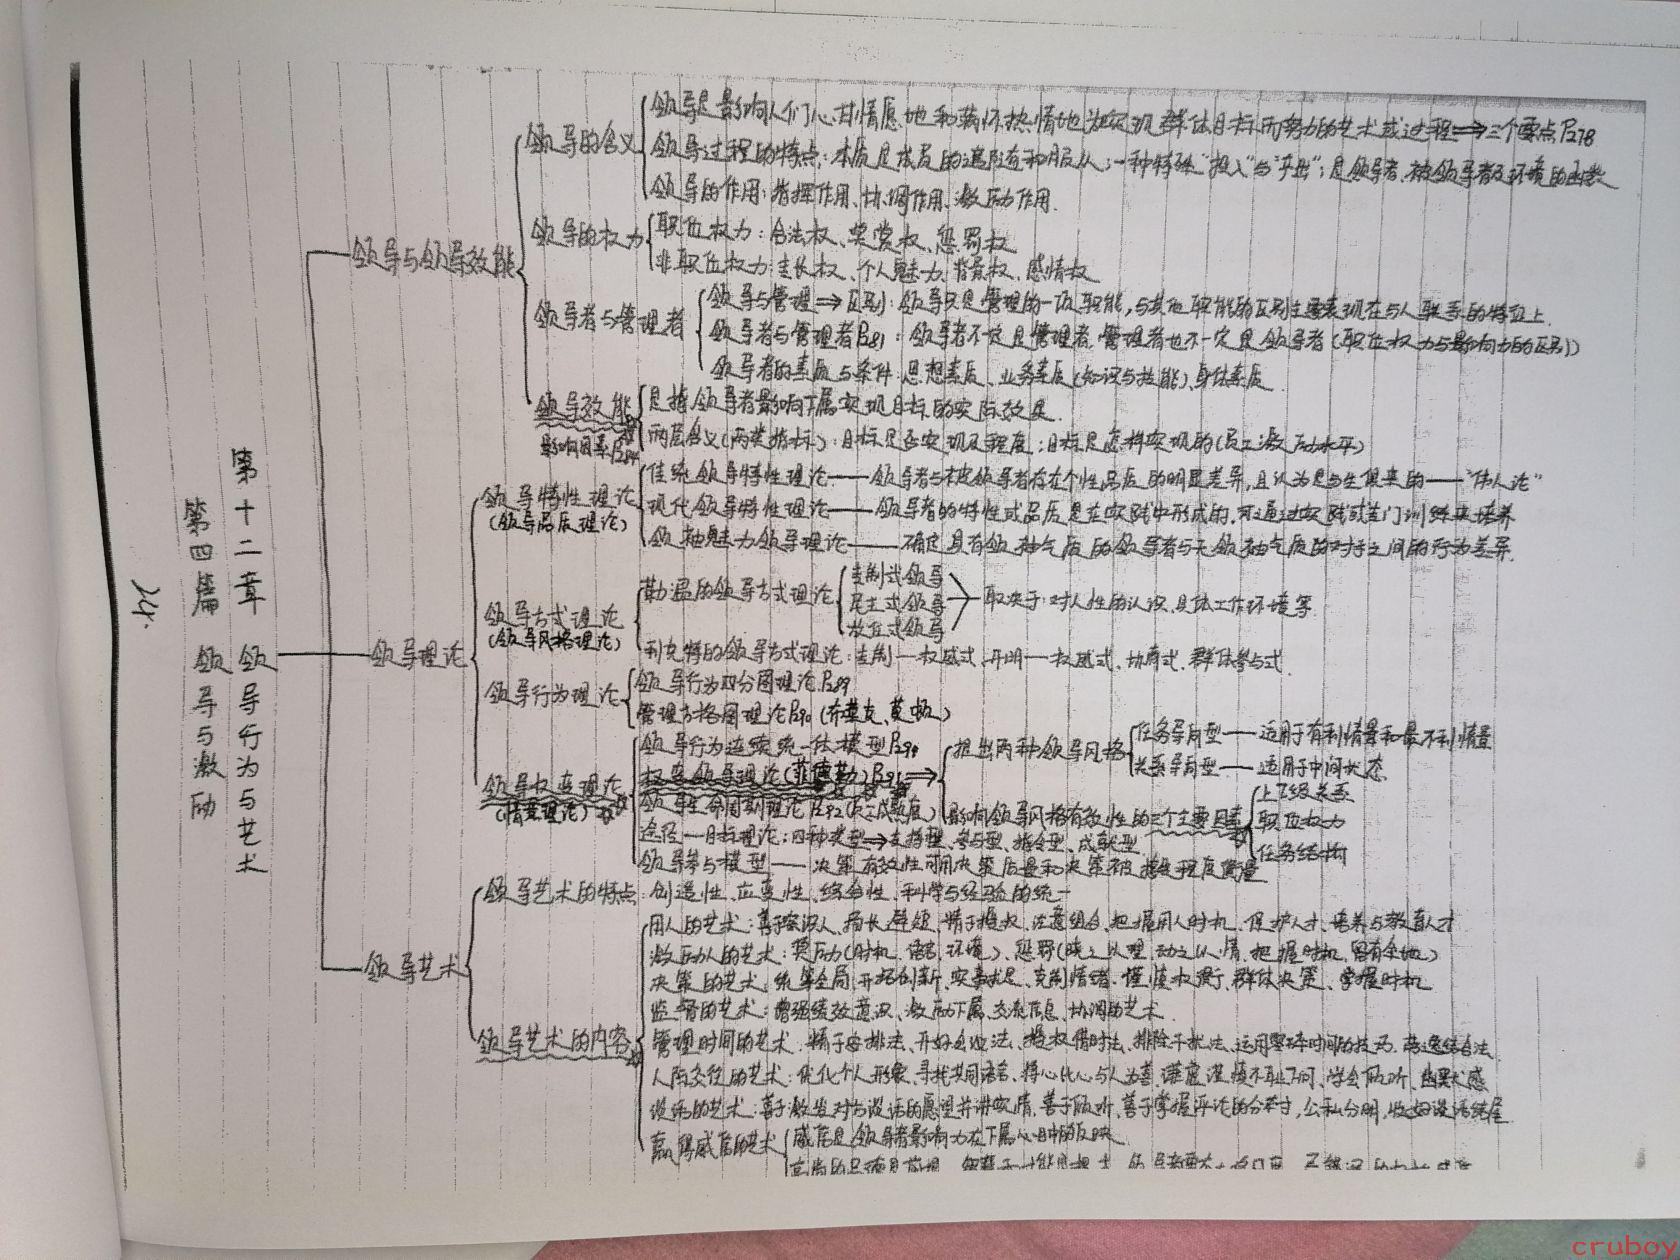 第四篇 领导与激励
第十二章 领导行为与艺术
24.
领导与领导效能
领导的含义
领导是影响人们心甘情愿地和满怀热情地为实现群体目标而努力的艺术或过程⇒三个要点P278
领导过程的特点:本质是成员的追随和服从;一种特殊"投入"与"产出";是领导者、被领导者及环境的函数
领导的作用:指挥作用、协调作用、激励作用.
领导的权力
职位权力:合法权、奖赏权、惩罚权
非职位权力:专长权、个人魅力、背景权、感情权
领导者与管理者
领导与管理⇒区别:领导只是管理的一项职能,与其他职能的区别主要表现在与人联系的特征上.
领导者与管理者P281:领导者不一定是管理者,管理者也不一定是领导者(职位权力与影响力的区别)
领导者的素质与条件:思想素质、业务素质(知识与技能)、身体素质
领导效能
影响因素P284
是指领导者影响下属实现目标的实际效果.
两层含义(两类指标):目标是否实现及程度;目标是怎样实现的(员工激励水平)
领导理论
领导特性理论
(领导品质理论)
传统领导特性理论——领导者与被领导者存在个性品质的明显差异,且认为是与生俱来的——"伟人论"
现代领导特性理论——领导者的特性或品质是在实践中形成的,可通过实践或专门训练来培养
领袖魅力领导理论——确定具有领袖气质的领导者与无领袖气质的对手之间的行为差异.
领导方式理论
(领导风格理论)
勒温的领导方式理论
专制式领导
民主式领导
放任式领导
取决于:对人性的认识,具体工作环境等.
利克特的领导方式理论:专制—权威式、开明—权威式、协商式、群体参与式.
领导行为理论
领导行为四分图理论P289
管理方格图理论P290(布莱克、莫顿)
领导权变理论
(情景理论)
领导行为连续统一体模型P290
权变领导理论(菲德勒)P291⇒
提出两种领导风格
任务导向型——适用于有利情景和最不利情景
关系导向型——适用于中间状态
影响领导风格有效性的三个主要因素
上下级关系
职位权力
任务结构
领导生命周期理论P292(下属成熟度)
途径—目标理论:四种类型⇒支持型、参与型、指令型、成就型
领导参与模型——决策有效性可用决策质量和决策被接受程度衡量
领导艺术
领导艺术的特点:创造性、应变性、综合性、科学与经验的统一
领导艺术的内容
用人的艺术:善于察识人、扬长避短、精于授权、注意组合、把握用人时机、保护人才、培养与教育人才
激励人的艺术:奖励(时机、语言、环境)、惩罚(晓之以理、动之以情、把握时机、留有余地)
决策的艺术:统筹全局、开拓创新、实事求是、克制情绪、谨慎权衡、群体决策、掌握时机
监督的艺术:增强绩效意识、激励下属、交流信息、协调的艺术.
管理时间的艺术:精于安排法、开好会议法、授权借时法、排除干扰法、运用零碎时间的技巧、劳逸结合法
人际交往的艺术:优化个人形象、寻找共同语言、将心比心与人为善、谦虚谨慎不耻下问、学会倾听、幽默感
谈话的艺术:善于激发对方谈话的愿望并讲实情、善于倾听、善于掌握评论的分寸,公私分明,收好谈话结尾
赢得威信的艺术
威信是领导者影响力在下属心目中的反映
cruboy